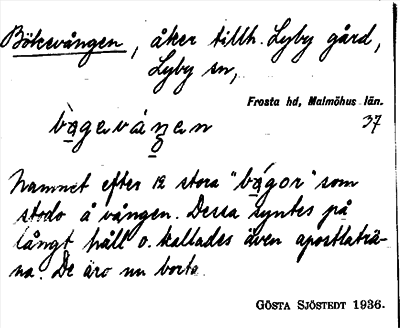 Bökevången, åker tillh. Lyby gård,
Lyby sn,
Frosta hd, Malmöhus län.
bøgevåŋen 37
Namnet efter 12 stora "bǿgor" som
stodo å vången. Dessa syntes på
långt håll o. kallades även apostlaträ-
na. De äro nu borta.
GÖSTA SJÖSTEDT 1936.